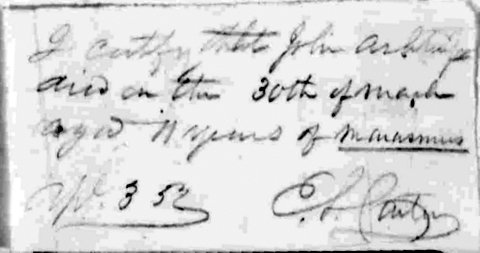 I certify that John Arbridge
died on the 30th of March
aged 11 years of Marasmus
W. 352 E. L.